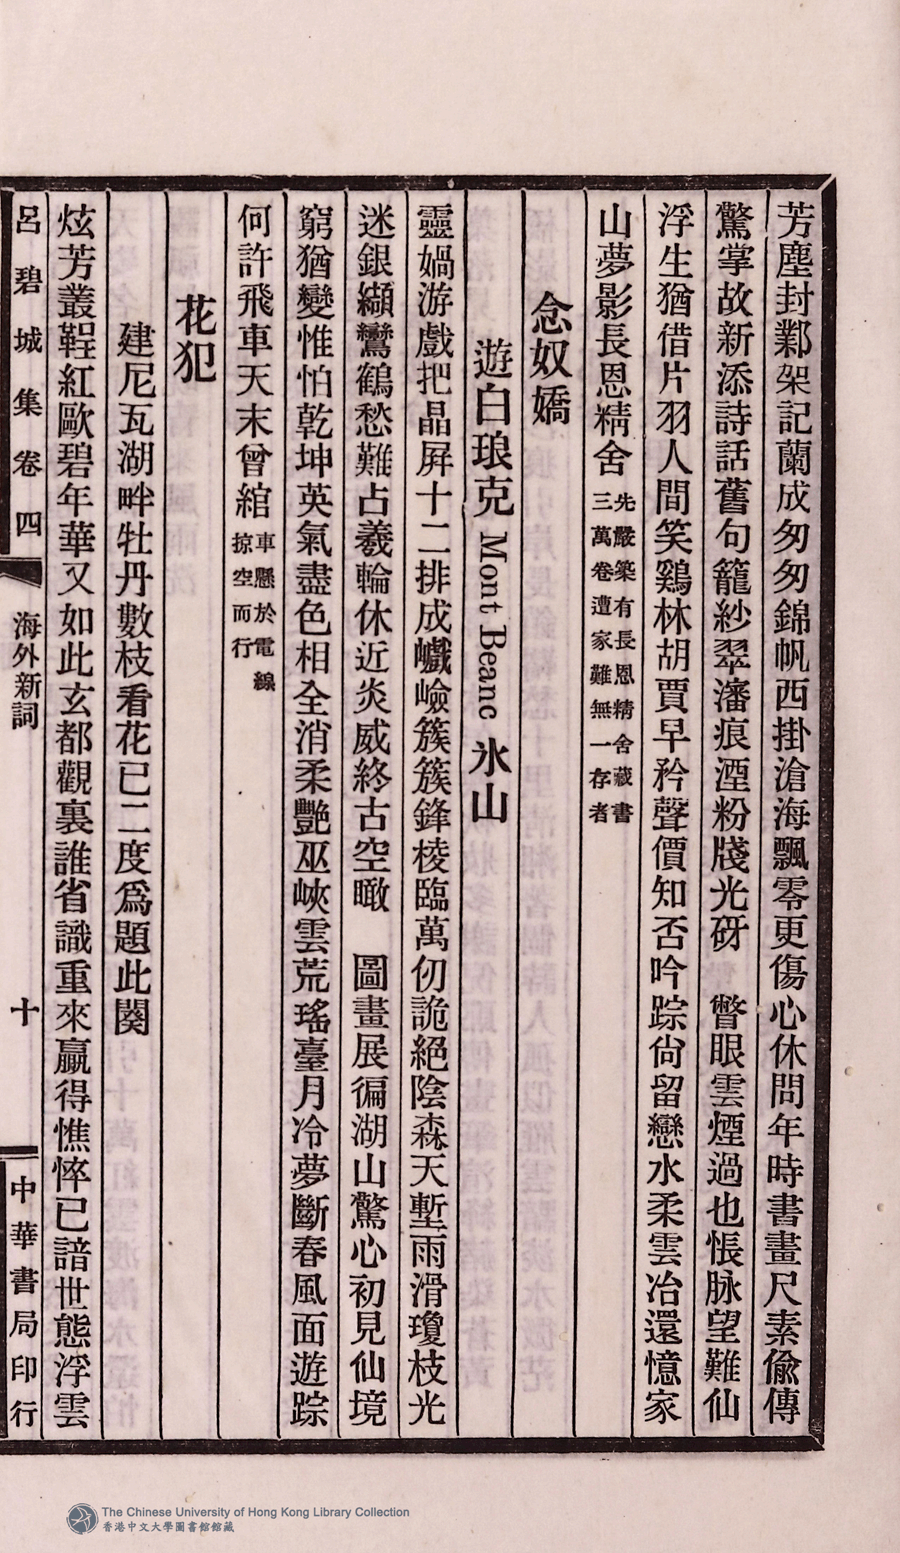 芳塵封鄴架記蘭成匆匆錦帆西掛滄海飄零更傷心休問年時書畫尺素偸傳
驚掌故新添詩話舊句籠紗翠瀋痕湮粉牋光砑　瞥眼雲煙過也悵脉望難仙
浮生猶借片羽人間笑鷄林胡賈早矜聲價知否吟踪尙留戀水柔雲冶還憶家
山夢影長恩精舍先嚴築有長恩精舍藏書
三萬卷遭家難無一存者
念奴嬌
遊白琅克 Mont Beanc 氷山
靈媧游戲把晶屛十二排成巇嶮簇簇鋒棱臨萬仞詭絕陰森天塹雨滑瓊枝光
迷銀纈鸞鶴愁難占羲輪休近炎威終古空瞰　圖畫展徧湖山驚心初見仙境
窮猶變惟怕乾坤英氣盡色相全消柔艷巫峽雲荒瑤臺月冷夢斷春風面遊踪
何許飛車天末曾綰車懸於電線
掠空而行
花犯
建尼瓦湖畔牡丹數枝看花已二度爲題此闋
炫芳叢鞓紅歐碧年華又如此玄都觀裏誰省識重來贏得憔悴已諳世態浮雲
呂碧城集卷四
海外新詞
十
中華書局印行
The Chinese University of Hong Kong Library Collection
香港中文大學圖書館館藏